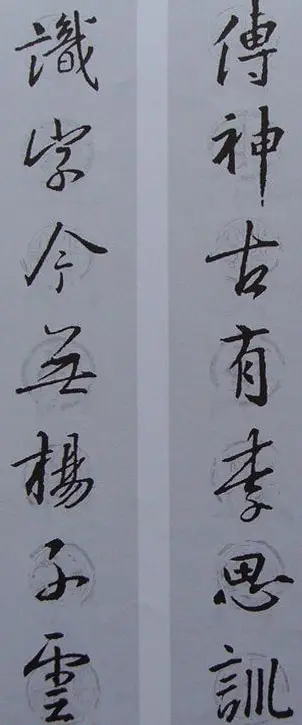 傳神古有李思訓
識字今無楊子雲